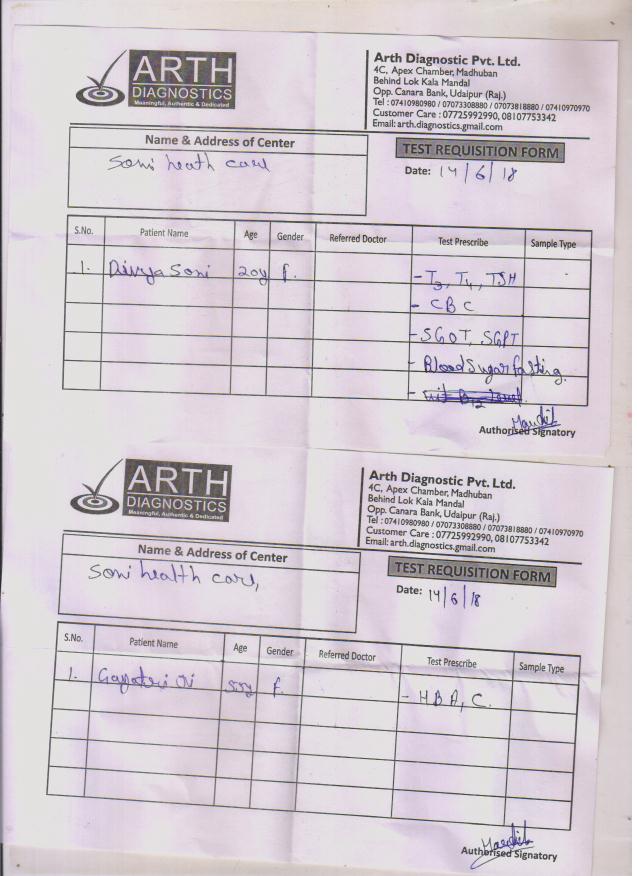 ARTH
DIAGNOSTICS
Meaningful, Authentic & Dedicated
Arth Diagnostic Pvt. Ltd.
4C, Apex Chamber, Madhuban
Behind Lok Kala Mandal
Opp. Canara Bank, Udaipur (Raj.)
Tel : 07410980980 / 07073308880 / 07073818880 / 07410970970
Customer Care : 07725992990, 08107753342
Email: arth.diagnostics.gmail.com
Name & Address of Center
Soni heath care
TEST REQUISITION FORM
Date: 14/6/18
S.No. Patient Name Age Gender Referred Doctor Test Prescribe Sample Type
1. Divya Soni 20y f. - T3, T4, TSH
- CBC
- SGOT, SGPT
- Blood Sugar fasting.
Authorised Signatory
ARTH
DIAGNOSTICS
Meaningful, Authentic & Dedicated
Arth Diagnostic Pvt. Ltd.
4C, Apex Chamber, Madhuban
Behind Lok Kala Mandal
Opp. Canara Bank, Udaipur (Raj.)
Tel : 07410980980 / 07073308880 / 07073818880 / 07410970970
Customer Care : 07725992990, 08107753342
Email: arth.diagnostics.gmail.com
Name & Address of Center
Soni health care,
TEST REQUISITION FORM
Date: 14/6/18
S.No. Patient Name Age Gender Referred Doctor Test Prescribe Sample Type
1. 55y f. - HBA1C.
Authorised Signatory